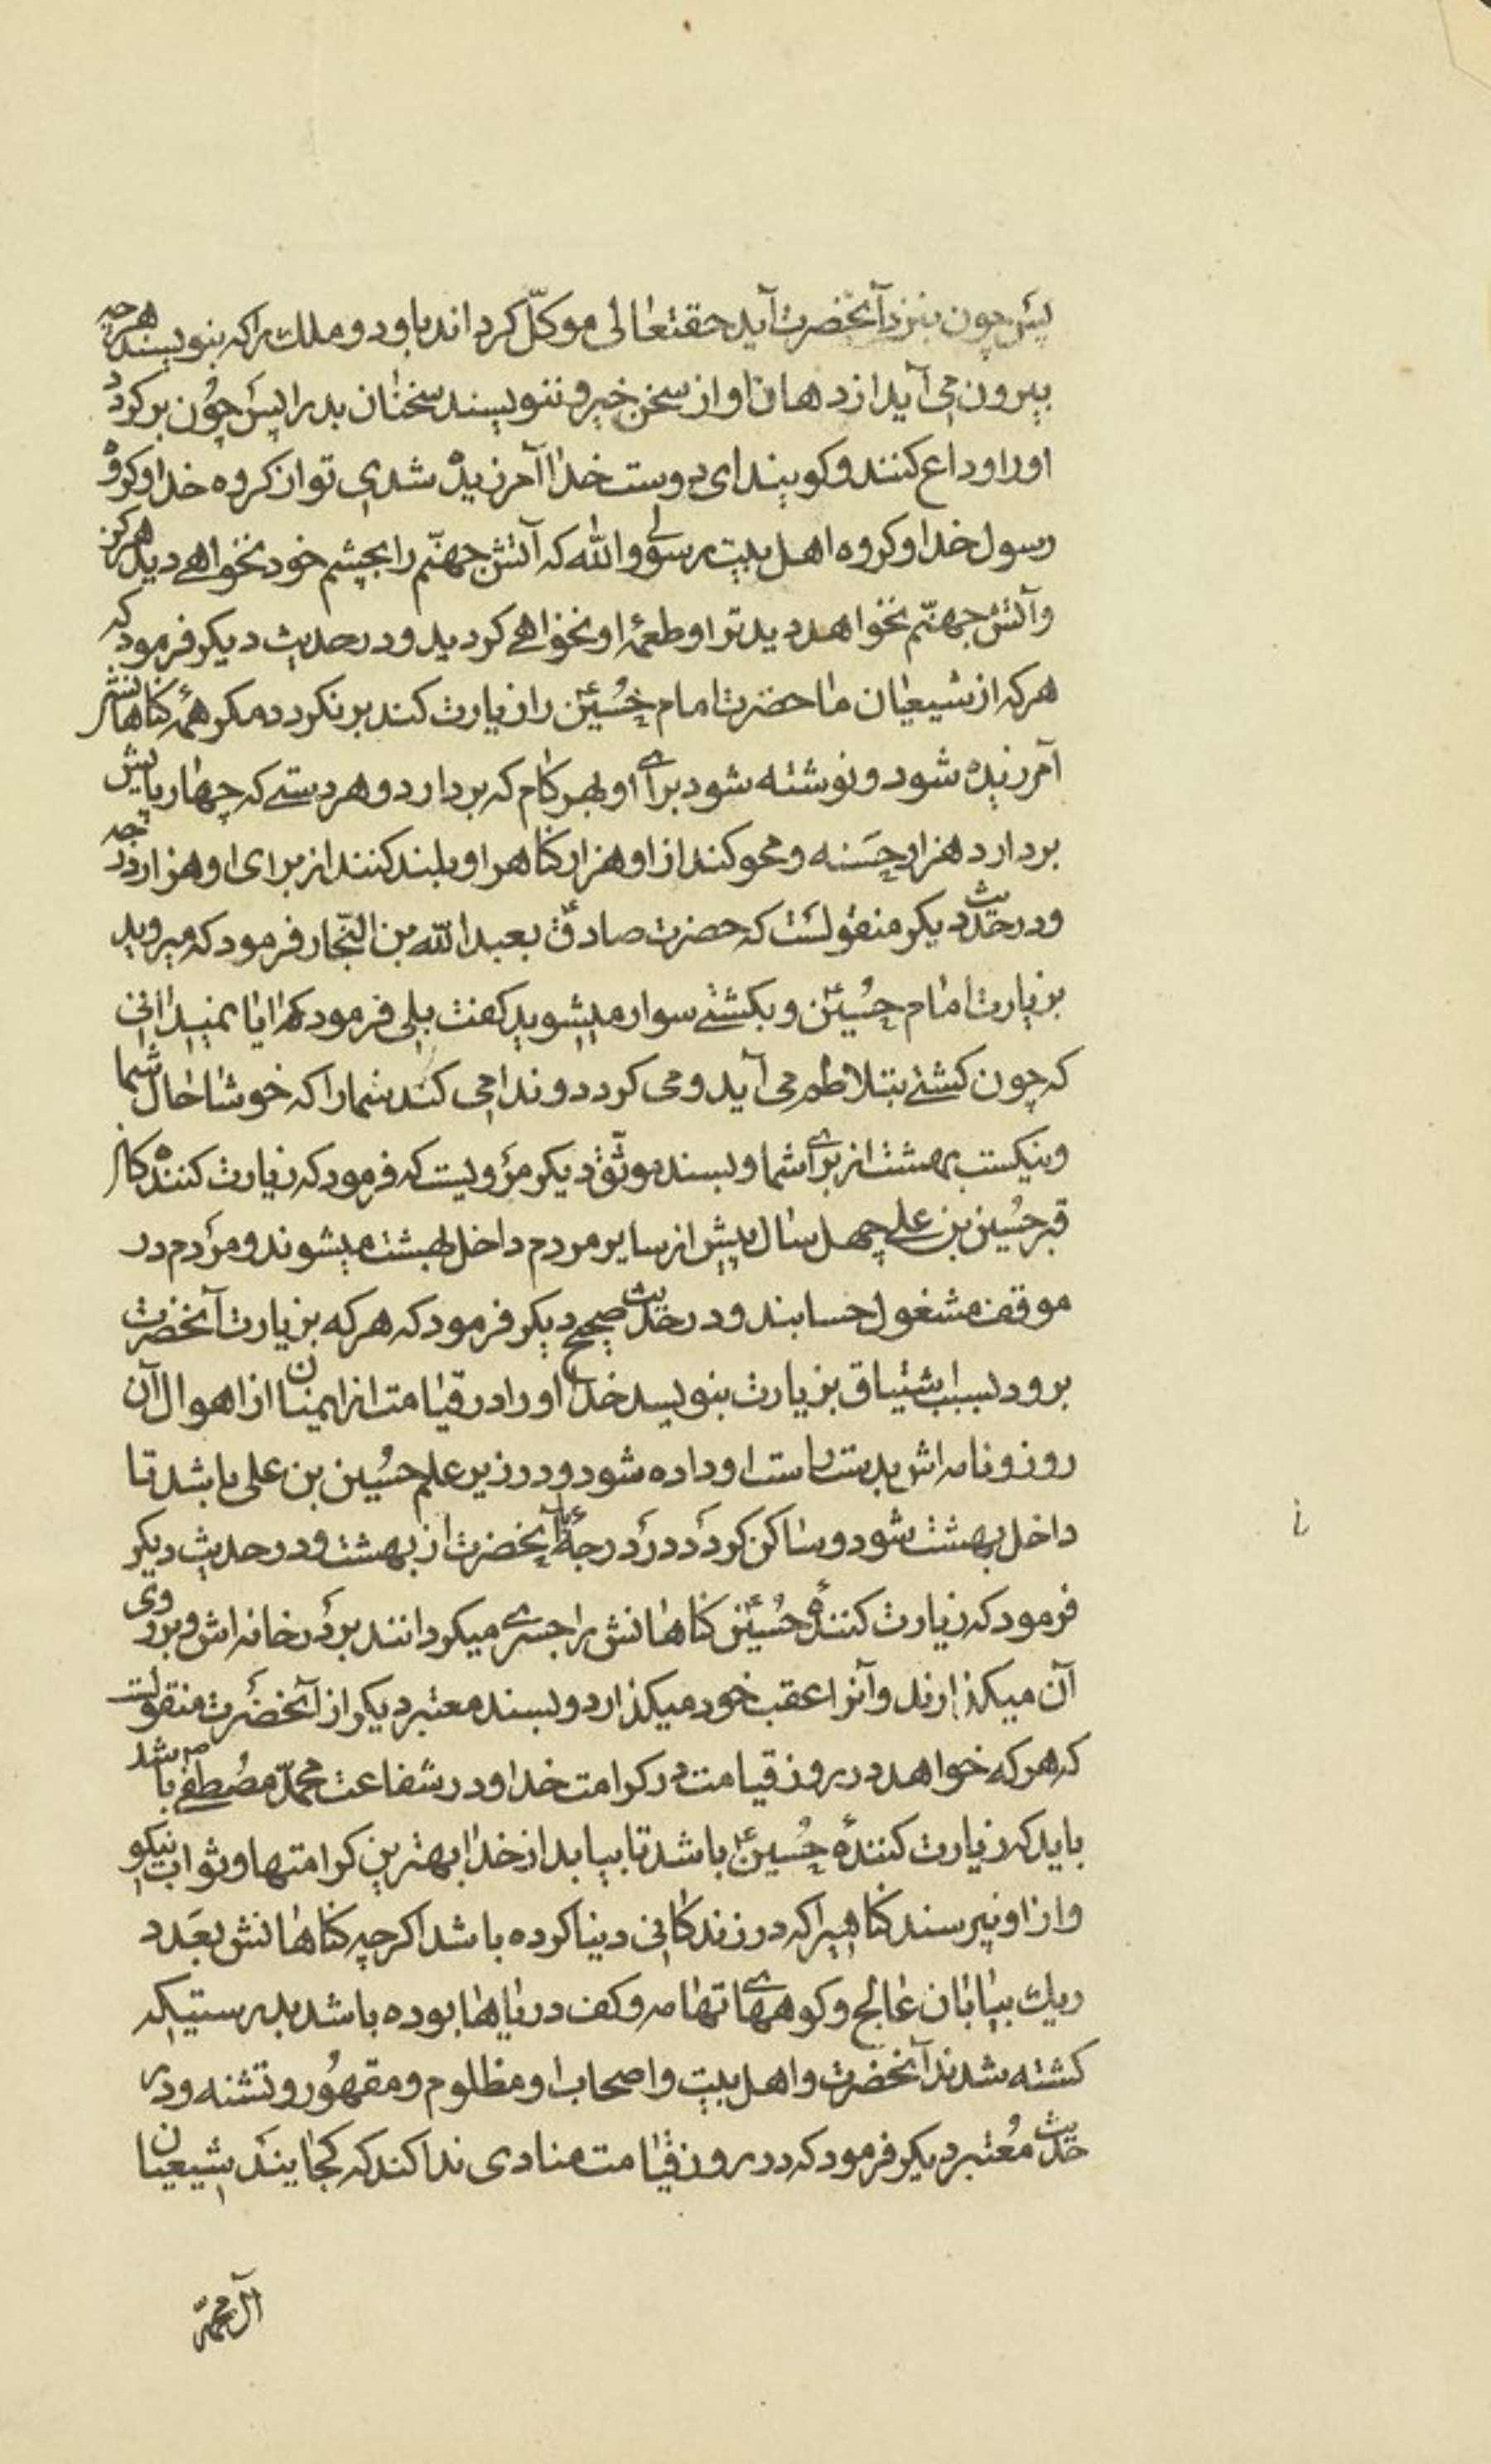 پس چون بنزد آنحضرت آید حقتعالی موکّل کرداند باو دو ملك را که بنویسند هرچه
بیرون می آید از دهان او از سخن خیر و ننویسند سخنان بد را پس چون برکردد
او را وداع کنند و کویند ای دوست خدا آمرزیده شدی تو از کروه خدا و کروه
رسول خدا و کروه اهل بیت رسولی و والله که آتش جهنّم را بچشم خود نخواهی دید هرکز
و آتش جهنّم نخواهد دید ترا و طعمۀ او نخواهی کردید و در حدیث دیکر فرمود که
هر که از شیعیان ما حضرت امام حُسینؑ را زیارت کند برنکردد مکر همۀ کناهانش
آمرزیده شود و نوشته شود برای او بهر کام که بردارد و هر دستی که چهارپایش
بردارد هزار حَسَنه و محو کند از او هزار کناه را و بلند کنند از برای او هزار درجه
و در حدیث دیکر منقولست که حضرت صادقؑ بعبدالله بن النّجار فرمود که میروید
بزیارت امام حُسینؑ و بکشتی سوار میشوید کفت بلی فرمود که ایا نمیدانی
که چون کشتی بتلاطم می آید و می کردد و ندا می کند شما را که خوشا حال شما
و نیکست بهشت از برای شما و بسند موثّق دیکر مرویست که فرمود که زیارت کنندکان
قبر حُسین بن علی چهل سال پیش از سایر مردم داخل بهشت میشوند و مردم در
موقف مشغول حسابند و در حدیث صحیح دیکر فرمود که هر که بزیارت آنحضرت
برود بسبب اشتیاق بزیارت بنویسد خدا او را در قیامت از ایمنان از اهوال آن
روز و نامه اش بدست راست او داده شود و در زیر علم حُسین بن علی باشد تا
داخل بهشت شود و ساکن کردد در درجۀ آنحضرت از بهشت و در حدیث دیکر
فرمود که زیارت کنندۀ حُسینؑ کناهانش را جسری میکردانند بر در خانه اش و بر روی
آن میکذارند و آنرا عقب خود میکذارد و بسند معتبر دیکر از آنحضرت منقولست
که هر که خواهد در روز قیامت در کرامت خدا و در شفاعت محمّد مصطفی ص باشد
باید که زیارت کنندۀ حُسینؑ باشد تا بیابد از خدا بهترین کرامتها و ثواب نیکو
و از او نپرسند کناهیرا که در زندکانی دینا کرده باشد اکرچه کناهانش بعَدد
ریك بیابان عالج و کوههای تهامه و کف دریاها بوده باشد بدرستیکه
کشته شدند آنحضرت و اهل بیت و اصحاب او مظلوم و مقهُور و تشنه و در
حدیث مُعتبر دیکر فرمود که در روز قیامت منادی ندا کند که کجایند شیعیان
آل محمّد